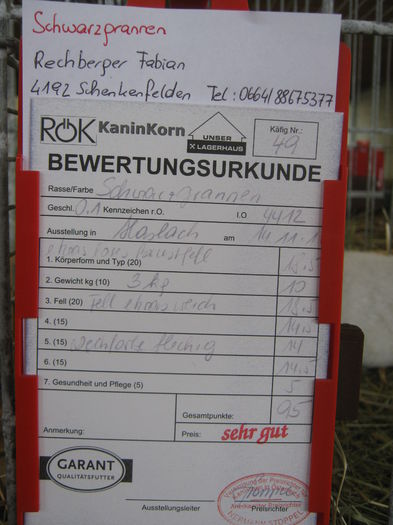 Schwarzgrannen
Rechberger Fabian
4192 Schenkenfelden Tel: 0664/88675377
RÖK KaninKorn UNSER LAGERHAUS Käfig Nr.: 49
BEWERTUNGSURKUNDE
Rasse/Farbe Schwarzgrannen
Geschl. 0,1 Kennzeichen r.O. I.O 4412
Ausstellung in Haslach am 14 11.
etwas loses Brustfell
1. Körperform und Typ (20) 18,5
2. Gewicht kg (10) 3 kg 10
3. Fell (20) Fell etwas weich 18,5
4. (15) 14,5
5. (15) Deckfarbe fleckig 14
6. (15) 14,5
7. Gesundheit und Pflege (5) 5
Gesamtpunkte: 95
Anmerkung: Preis: sehr gut
GARANT
QUALITÄTSFUTTER
Ausstellungsleiter Preisrichter
HERMANN STÖPPEL